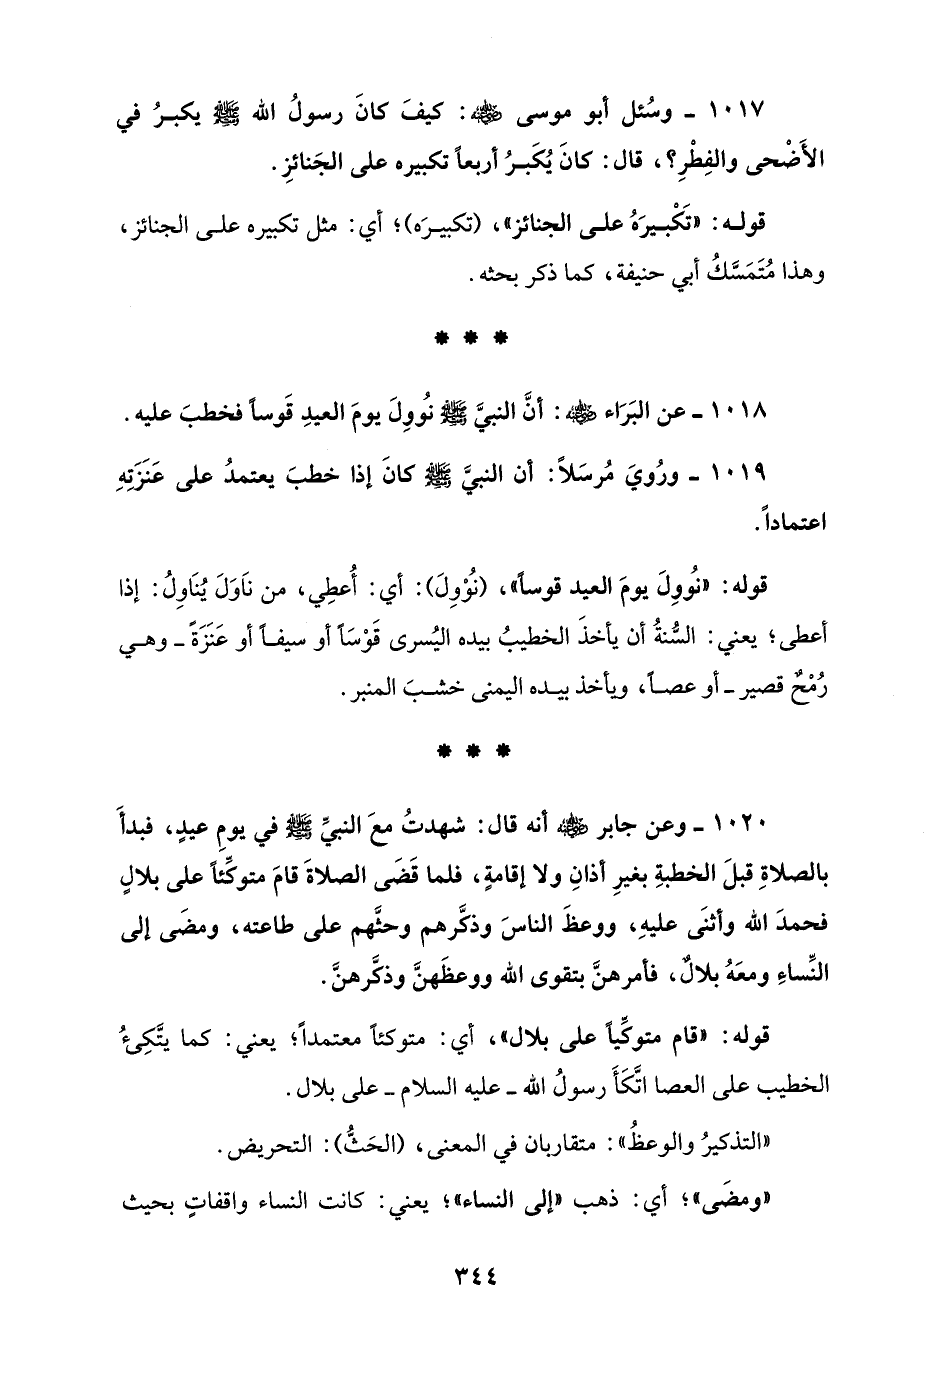 ١٠١٧ ـ وسُئل أبو موسى ﵁: كيفَ كانَ رسولُ الله ﷺ يكبرُ في
الأَضْحى والفِطْرِ؟، قال: كانَ يُكَبرُ أربعاً تكبيره على الجَنائزِ.
قوله: «تَكْبيرَهُ على الجنائز»، (تكبيرَه)؛ أي: مثل تكبيره على الجنائز،
وهذا مُتَمَسَّكُ أبي حنيفة، كما ذكر بحثه.
* * *
١٠١٨ ـ عن البَرَاء ﵁: أنَّ النبيَّ ﷺ نُووِلَ يومَ العيدِ قَوساً فخطبَ عليه.
١٠١٩ ـ ورُويَ مُرسَلاً: أن النبيَّ ﷺ كانَ إذا خطبَ يعتمدُ على عَنَزَتِهِ
اعتماداً.
قوله: «نُووِلَ يومَ العيد قوساً»، (نُوْوِلَ): أي: أُعطِي، من نَاوَلَ يُنَاوِلُ: إذا
أعطى؛ يعني: السُّنةُ أن يأخذَ الخطيبُ بيده اليُسرى قَوْسَاً أو سيفاً أو عَنَزَةً ـ وهي
رُمْحٌ قصير ـ أو عصاً، ويأخذ بيده اليمنى خشبَ المنبر.
* * *
١٠٢٠ ـ وعن جابر ﵁ أنه قال: شهدتُ معَ النبيِّ ﷺ في يومِ عيدٍ، فبدأَ
بالصلاةِ قبلَ الخطبةِ بغيرِ أذانِ ولا إقامةٍ، فلما قَضَى الصلاةَ قامَ متوكِّئاً على بلالٍ
فحمدَ الله وأثنَى عليهِ، ووعظَ الناسَ وذكَّرهم وحثَّهم على طاعته، ومضَى إلى
النِّساءِ ومعَهُ بلالٌ، فأمرهنَّ بتقوى الله ووعظَهنَّ وذكَّرهنَّ.
قوله: «قام متوكِّياً على بلال»، أي: متوكئاً معتمداً؛ يعني: كما يتَّكِىءُ
الخطيب على العصا اتَّكَأَ رسولُ الله ـ عليه السلام ـ على بلال.
«التذكيرُ والوعظُ»: متقاربان في المعنى، (الحَثُّ): التحريض.
«ومضَى»؛ أي: ذهب «إلى النساء»؛ يعني: كانت النساء واقفاتٍ بحيث
٣٤٤